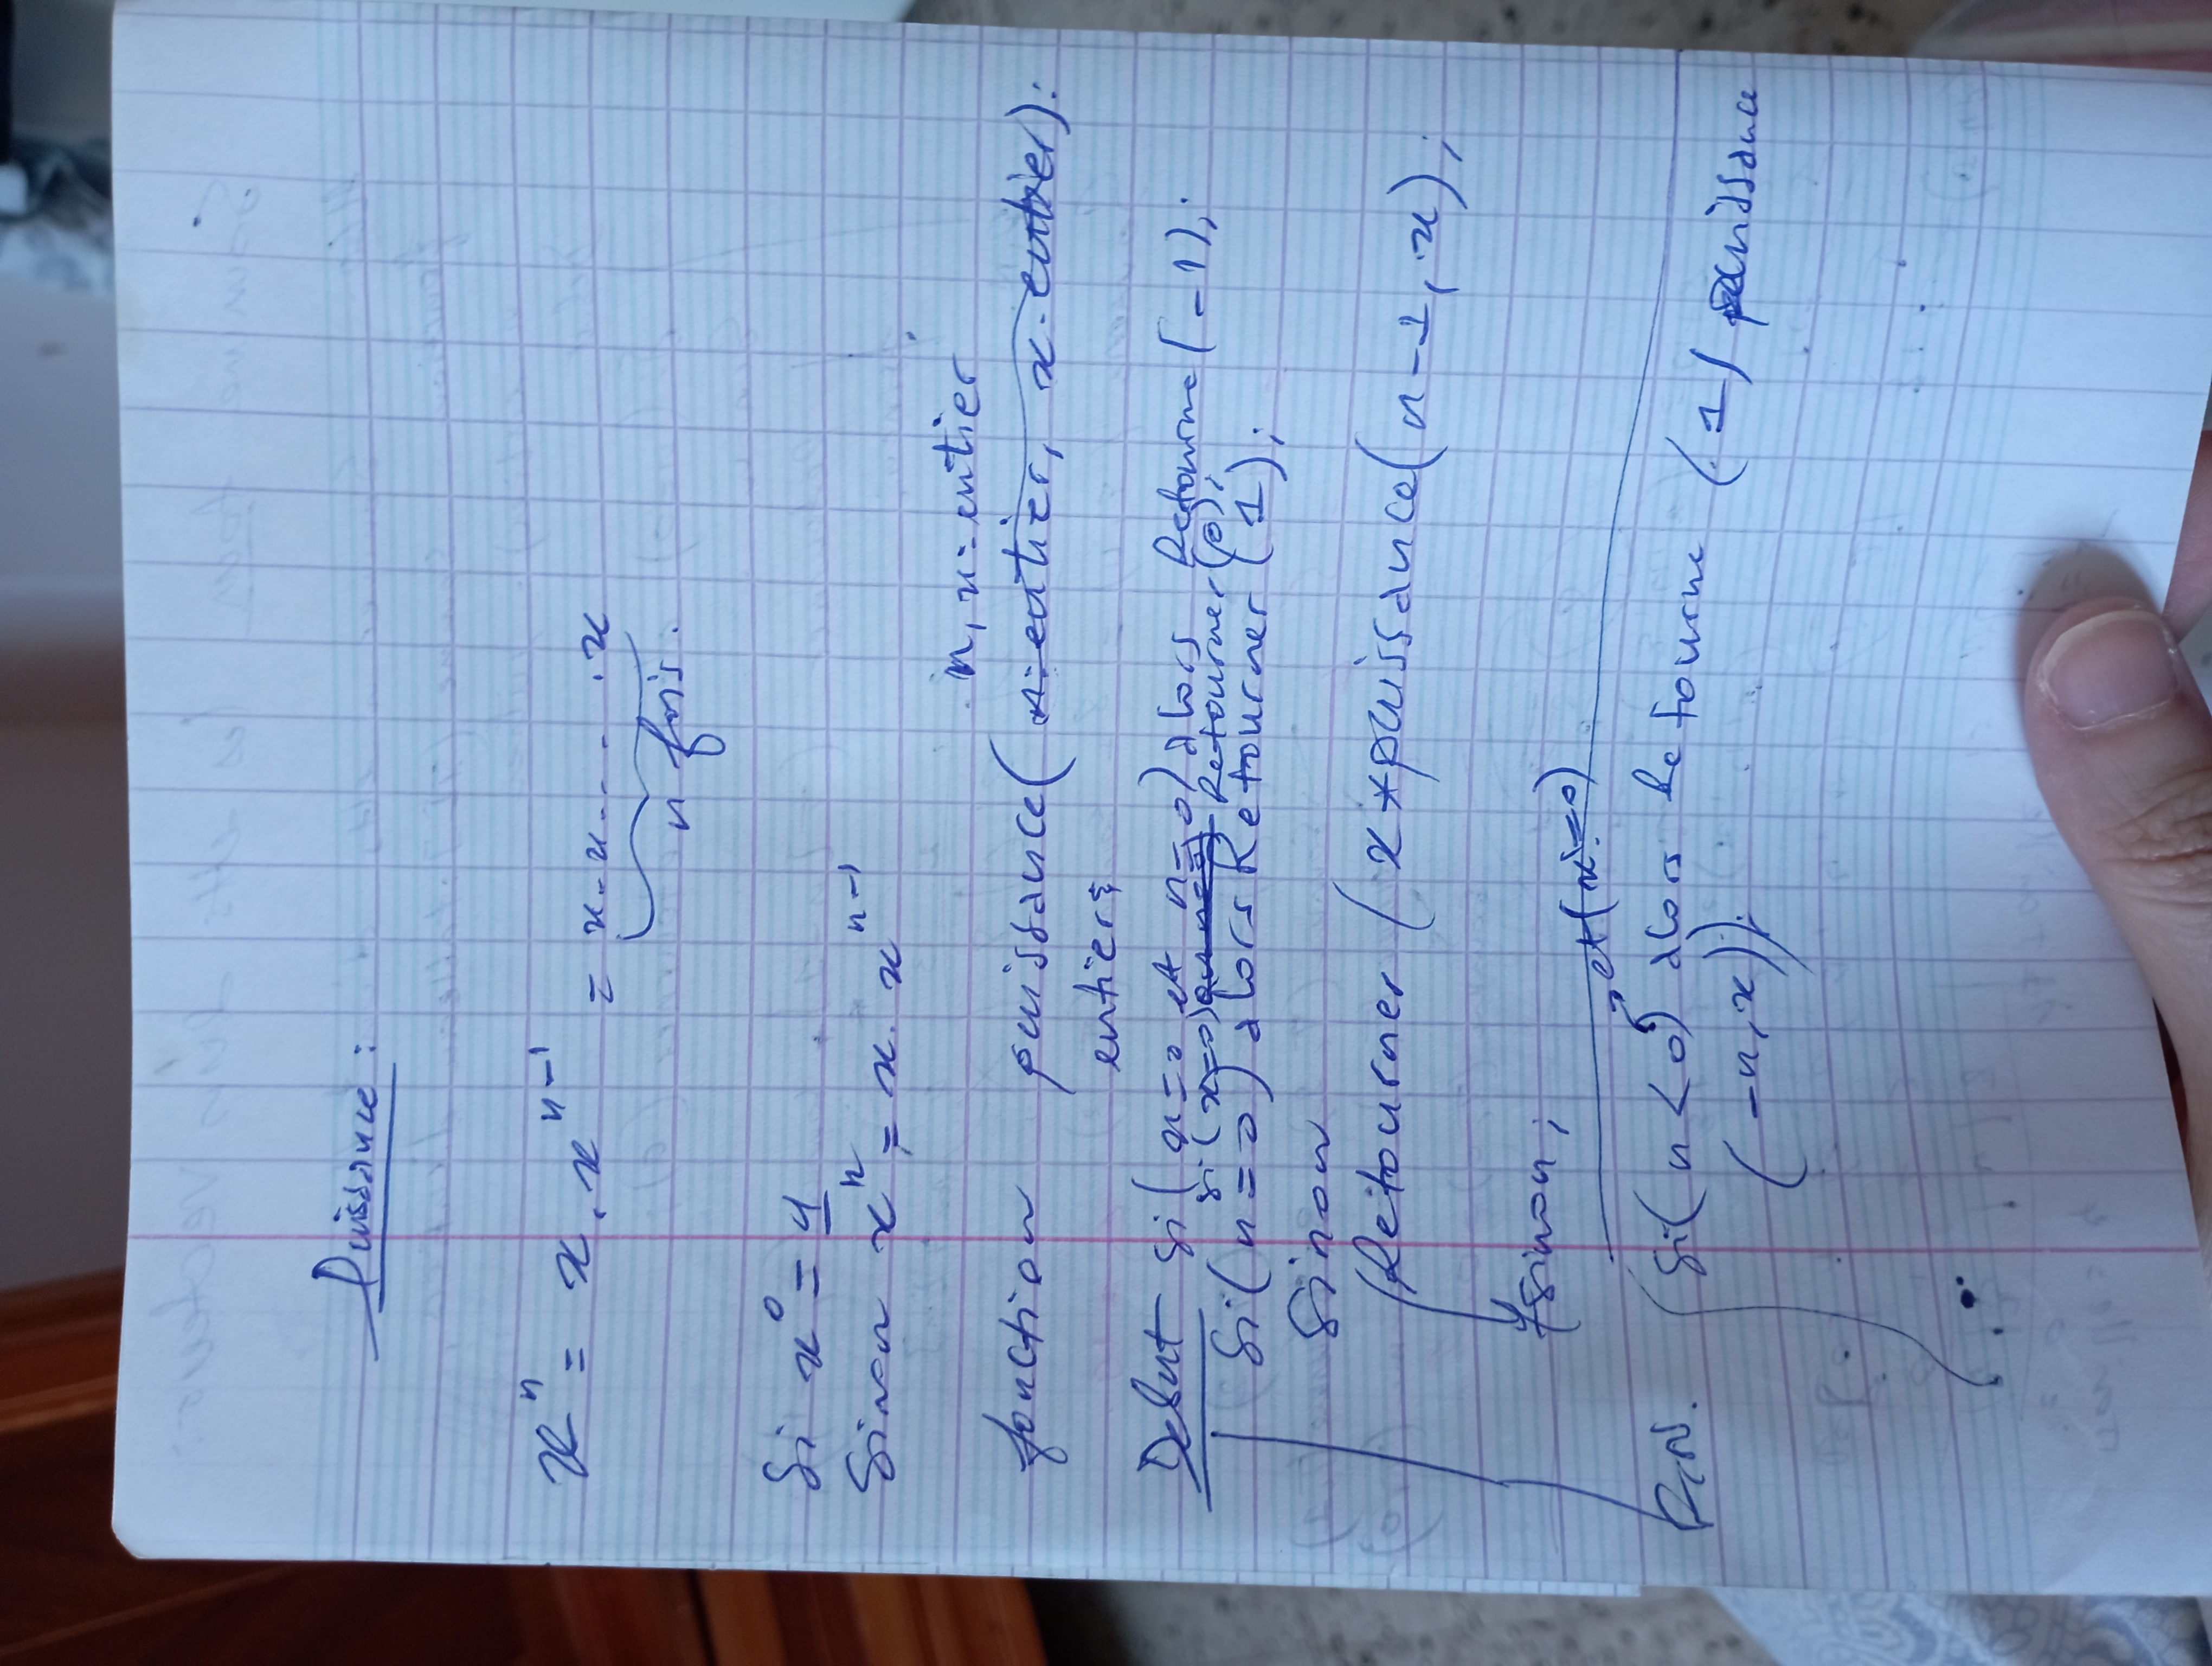 Puissance :
xⁿ = x . xⁿ⁻¹ = x . x . . . . x
n fois.
Si x⁰ = 1
Sinon xⁿ = x . xⁿ⁻¹
n, x = entier
fonction puissance( n: entier, x: entier):
entier;
Debut Si( x=0 et n=0) alors Retourne(-1);
Si(x=0) ou n=0) Retourner(0);
Si(n=0) alors Retourner(1);
Sinon
Retourner (x*puissance(n-1, x);
fsinon;
et(x!=0)
Fin. Si( n<0) alors Retourne (1/ puissance
(-n, x));